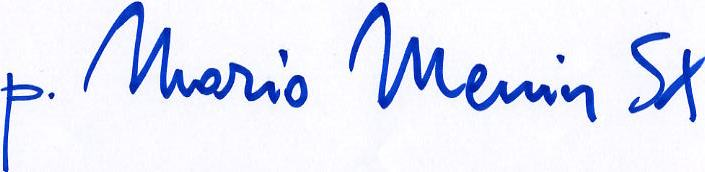 p. Mario Menin SX